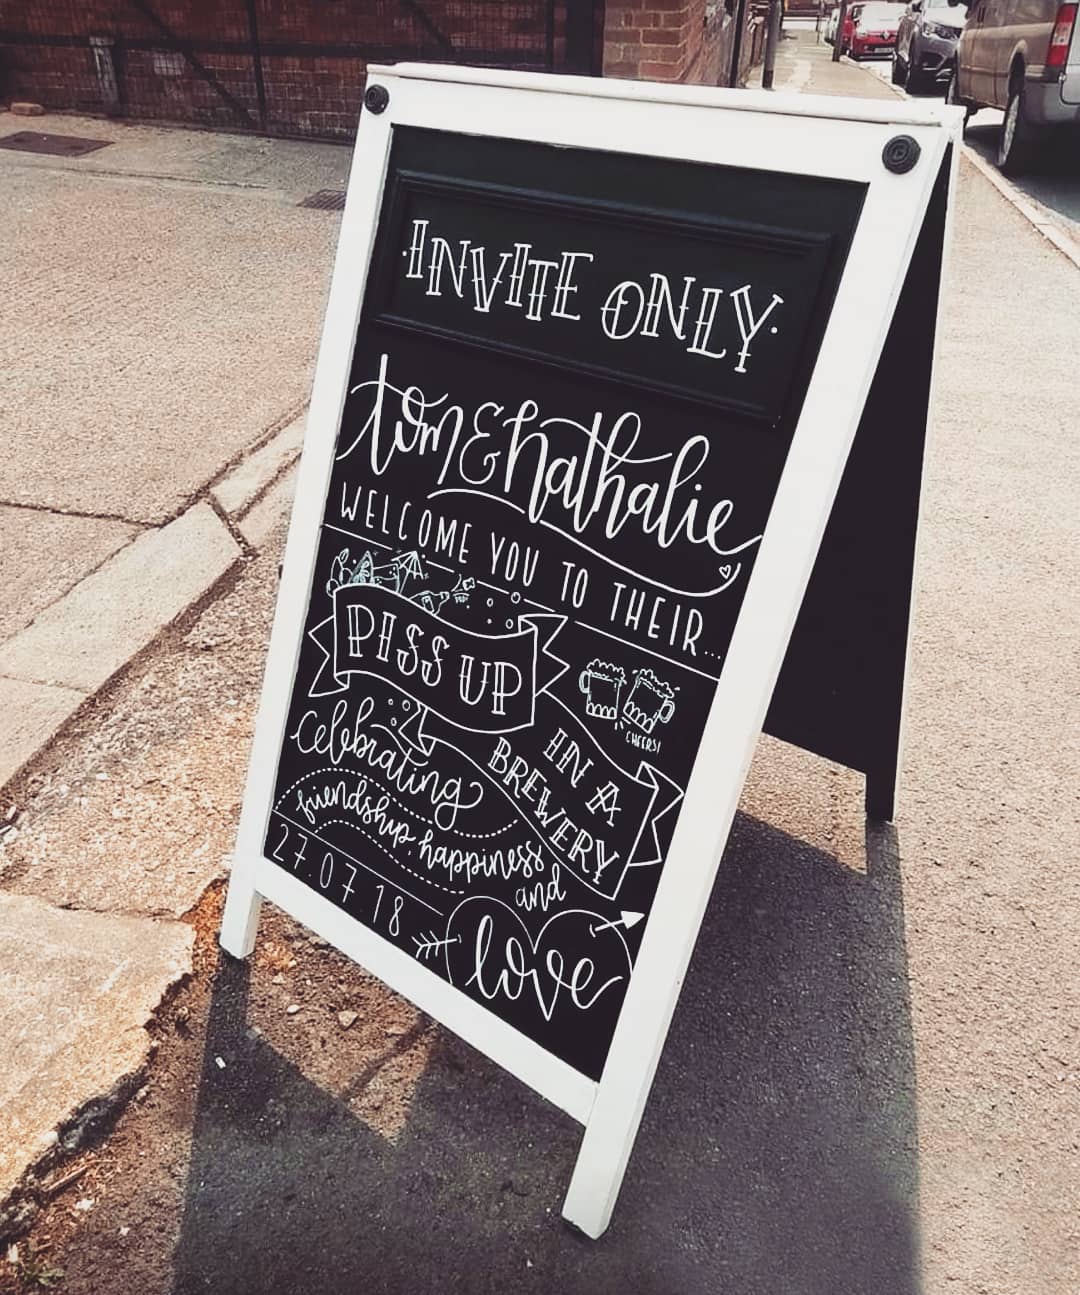 ·INVITE ONLY·
tom & nathalie
WELCOME YOU TO THEIR...
POP
PISS UP
CHEERS!
IN A
BREWERY
celebrating
friendship, happiness
and
love
27.07.18